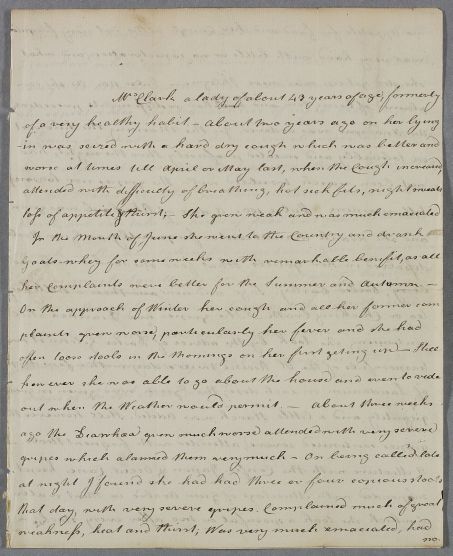 Mrs Clark a lady of about 43 years of age, formerly
of a very healthy habit - about two years ago on her lying
in was seized with a hard dry cough which was better and
worse at times till April or May last, when the Cough increased,
attended with difficulty of breathing, hot sick fits, night sweats
loss of appetite & thirst; - She grew weak and was much emaciated
In the Month of June she went to the Country and drank
goats-whey for some weeks with remarkable benefit, as all
her complaints were better for the Summer and Autumn -
On the approach of Winter her cough and all her former com
plaints grew worse, particularly her fever and she had
often loose stools in the Mornings on her first getting up - Still
however she was able to go about the house and even to ride
out when the Weather would permit. - About three weeks
ago the Diarrhœa grew much worse attended with very severe
gripes which alarmed them very much - On being called late
at night I found she had had three or four copious stools
that day, with very severe gripes. Complained much of great
weakness, heat and thirst; Was very much emaciated, had
no